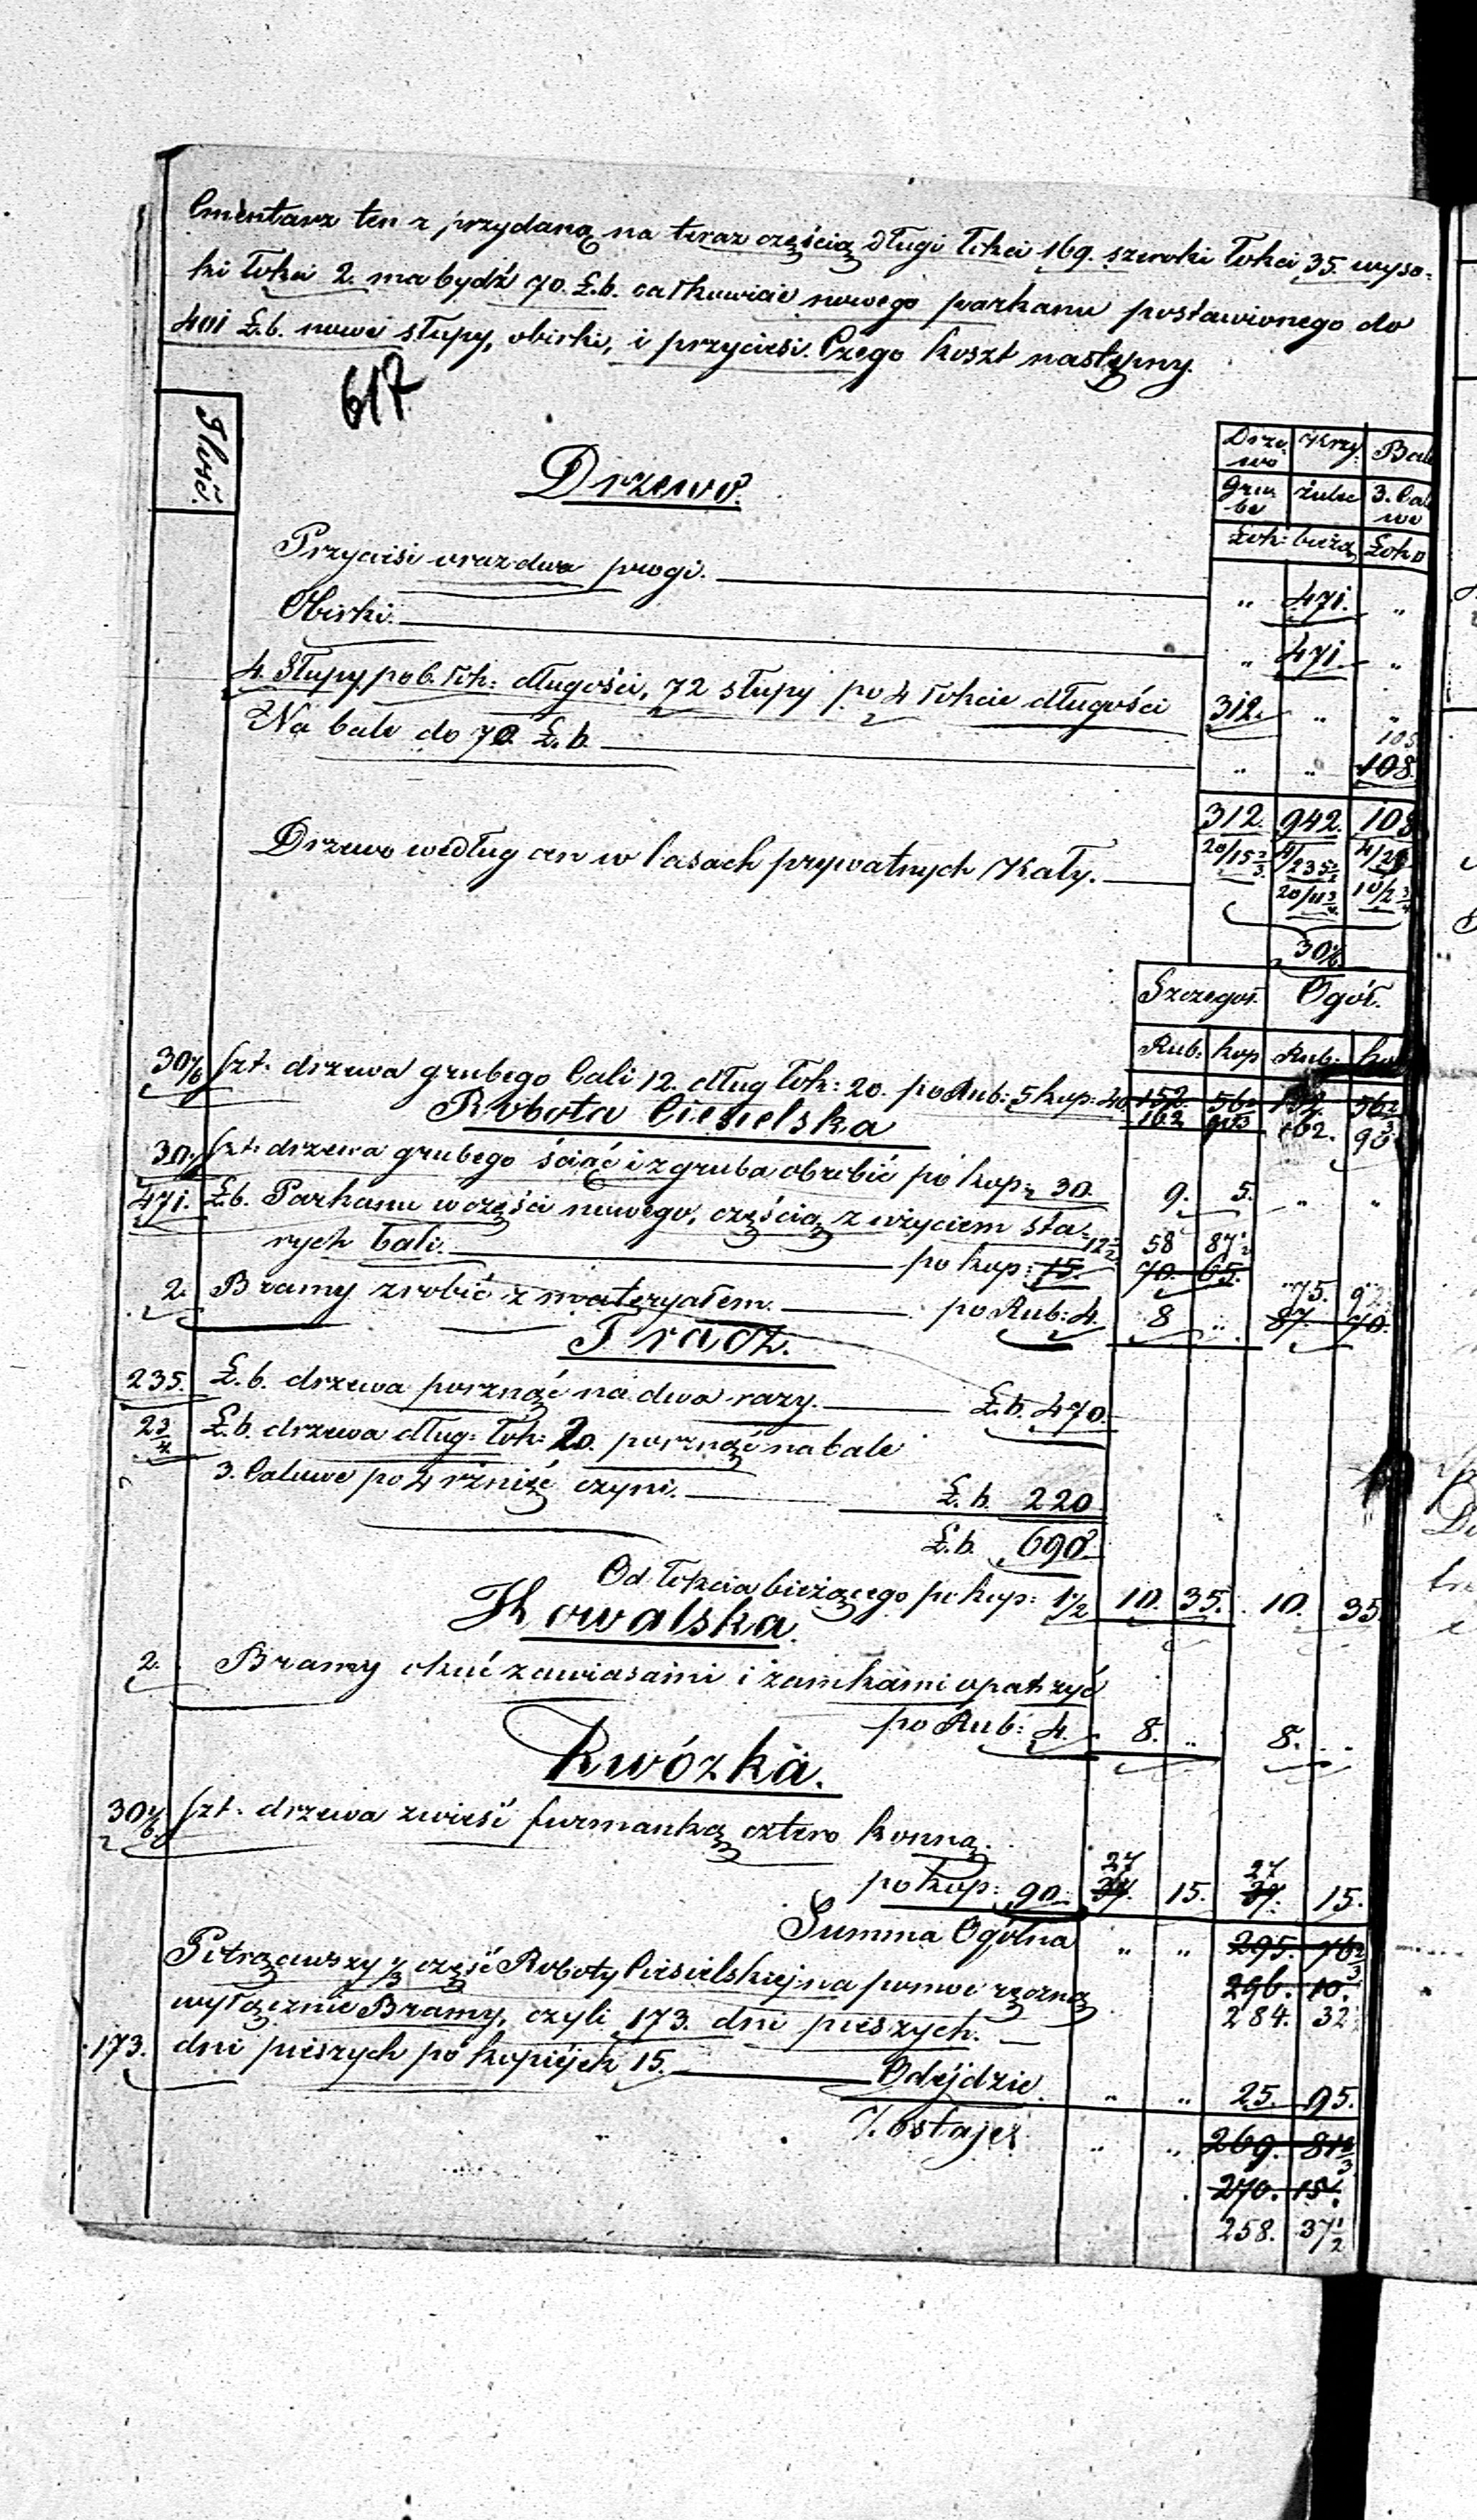 Cmentarz ten z przydaną na teraz częścią długi łokci 169. szeroki łokci 35. wyso-
ki łokci 2. ma bydź 70. Ł.b. całkowicie nowego parkanu postawionego do
401 Ł.b. nowe słupy, obirki, i przyciesi. Czego koszt następny.
617
Ilość.
Drzewo.
Drze- Krzy- Bale
wo
gru- żulce 3. Calo-
be we
Łok: bieżą Łok
Przyciesi oraz dwa progi. " 471. "
Obirki. " 471. "
4. Słupy po 6. łok: długości, 72 słupy po 4 łokcie długości 312. " "
105
Na bale do 70. Ł.b. " " 108.
312. 942. 108
Drzewo według cen w lasach prywatnych 20/15 3/5. 4/235 1/2 4/27
20/11 3/4 10/2 3/4
30 1/6
Szczegół. Ogół.
Rub: kop Rub: kop
30 1/6 szt. drzewa grubego Cali 12. dług łok: 20. po Rub: 5 kop: 40 152. 56 152. 56
162 90 162. 90
Robota Ciesielska
30 1/6 szt. drzewa grubego ściąć i zgruba obrobić po kop: 30. 9. 5. " "
471. Ł.b. Parkanu w części nowego, częścią z użyciem sta-
rych bali. po kop: 15. 12 1/2 58 87 1/2
70. 65. 75. 92
2. Bramy zrobić z materyałem. po Rub: 4. 8 " 87. 70.
Tracz.
235. Ł.b. drzewa porznąć na dwa razy. Ł.b. 470.
2 3/4 Ł.b. drzewa dług: łok: 20. porznąć na bale
3. Calowe po 4 rżnięć czyni. Ł.b. 220
Ł.b. 690
Od łokcia bieżącego po kop: 1 1/2 10. 35. 10. 35
Kowalska.
2. Bramy okuć zawiasami i zamkami opatrzyć
po Rub: 4. 8. " 8. "
Zwózka.
30 1/6 szt. drzewa zwieść furmanką cztero konną.
27 27
po kop: 90. 15. 15.
Summa Ogólna " " 295. 76 1/2
Potrąciwszy 1/3 część Roboty Ciesielskiej na pomoc ręczną 296. 10.
wyłącznie Bramy, czyli 173. dni pieszych. 284. 32
173. dni pieszych po kopiejek 15. Odejdzie " " 25. 95.
Zostaje " " 269. 81
270. 15.
258. 37 1/2